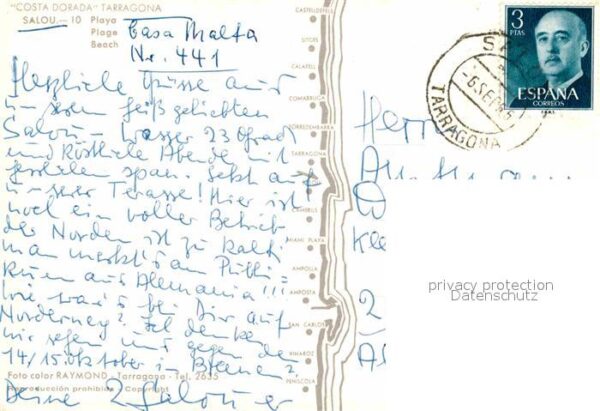 "COSTA DORADA" TARRAGONA
SALOU.— 10 Playa
Plage
Beach
Casa Malta
Nr. 441
Herzliche Grüsse aus
unserem heißgeliebten
Salou - Wasser 23 Grad
und köstliche Abende mit
span. Sekt auf
unserer Terasse! Hier ist
noch ein voller Betrieb
der Norden ist zu kalt
man merkt's am
aus Alemania!!!
Wie war's bei Dir auf
Norderney? Ich denke
wir sehen uns gegen den
14/15. Oktober in Bremen?
Deine 2 Salouer
Foto color RAYMOND - Tarragona - Tel. 2635
Reproducción prohibida - Copyright
CASTELLDEFELS
SITGES
CALAFELL
COMARRUGA
TORREDEMBARRA
TARRAGONA
CAMBRILS
MIAMI PLAYA
AMPOLLA
AMPOSTA
SAN CARLOS
VINAROZ
PEÑISCOLA
3
PTAS
ESPAÑA
CORREOS
TARRAGONA
Herrn
2
privacy protection
Datenschutz